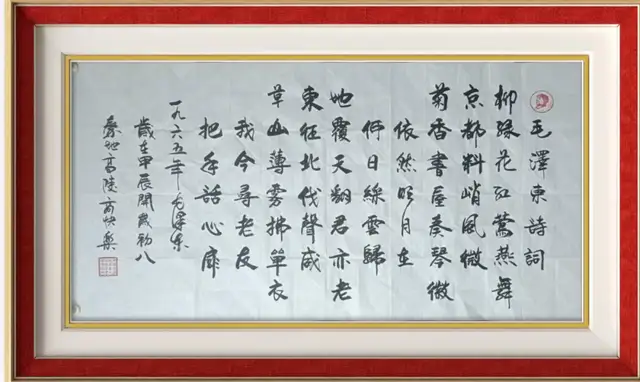 毛澤東詩詞
柳緑花红鶯燕舞
京都料峭風微
菊香書屋奏琴徽
依然明月在
何日綵雲歸
地覆天翻君亦老
東征北伐聲威
草山薄雾拂單衣
我今尋老友
把手話心扉
一九六五年毛澤东
歲在甲辰開歲初八
秦地高陵